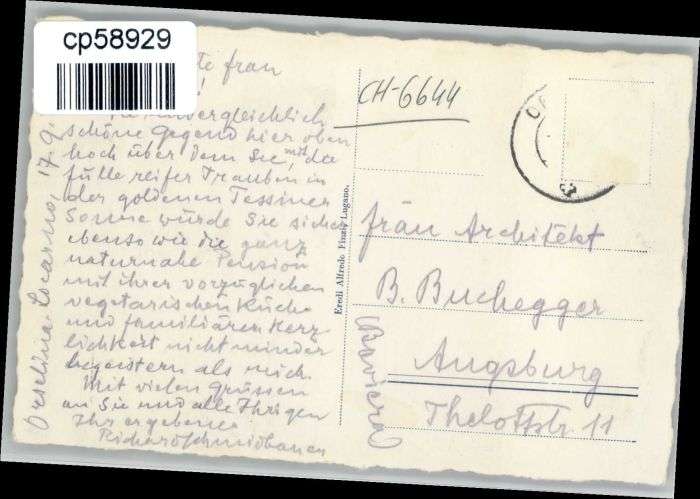 cp58929
te frau
!
unvergleichlich
schöne Gegend hier oben
hoch über dem See, mit der
fülle reifer Trauben in
der goldenen Tessiner
Sonne würde Sie sicher
ebenso wie die ganz
naturnahe Pension
mit ihrer vorzüglichen
vegetarischen Küche
und familiären Herz
lichkeit nicht minder
begeistern als mich.
Mit vielen Grüssen
an Sie und alle Ihrigen
Ihr ergebener
Richard Schmidbauer
Orselina-Locarno, 17.9.
Eredi Alfredo Finzi, Lugano.
CH-6644
frau Architekt
B. Buchegger
Augsburg
Thelottstr 11
(Baviera)